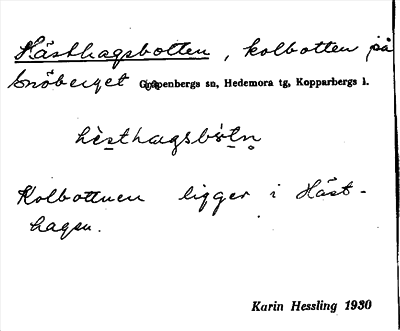 Hästhagsbotten, kolbotten på
Snöberget Garpenbergs sn, Hedemora tg, Kopparbergs l.
hèsthagsbòtn̥
Kolbottnen ligger i Häst-
hagen.
Karin Hessling 1930